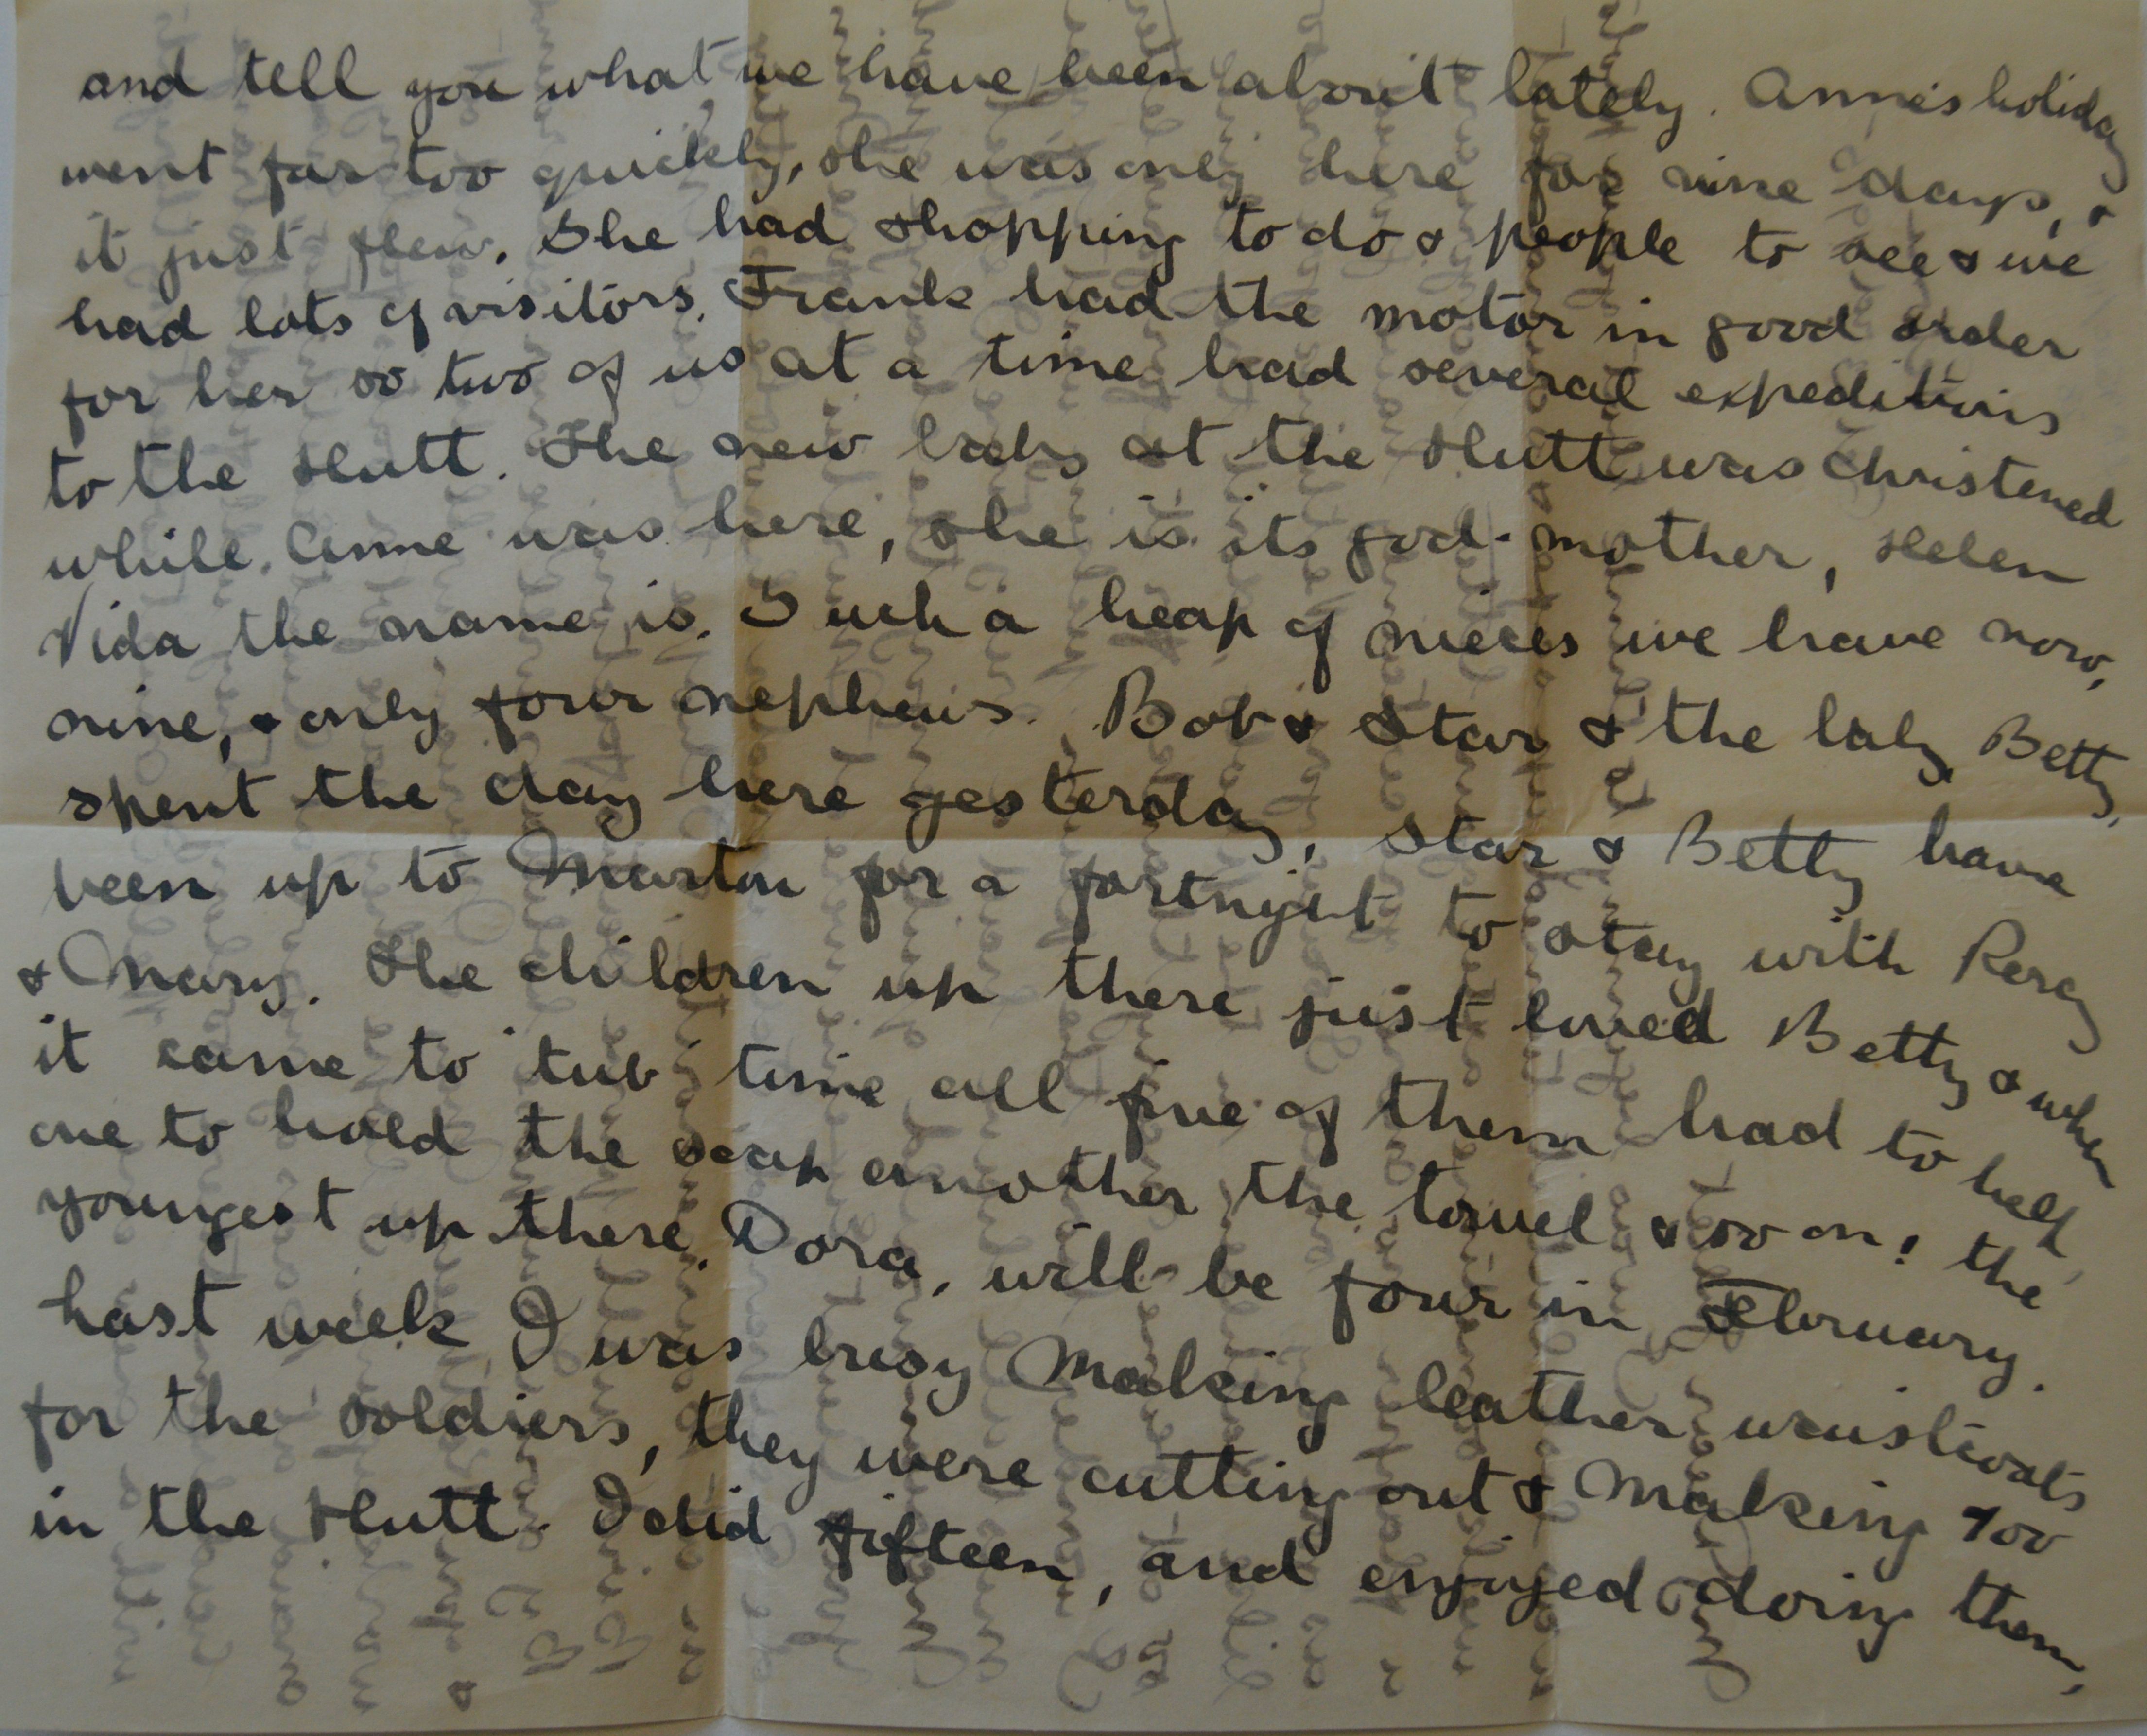 and tell you what we have been about lately. Anne's holiday
went far too quickly, she was only here for nine days, &
it just flew. She had shopping to do & people to see & we
had lots of visitors. Frank had the motor in good order
for her so two of us at a time had several expeditions
to the Hutt. The new baby at the Hutt was christened
while Anne was here, she is its god-mother, Helen
Vida the name is. Such a heap of nieces we have now,
nine, & only four nephews. Bob & Star & the baby Betty,
spent the day here yesterday, Star & Betty have
been up to Marton for a fortnight to stay with Percy
& Mary. The children up there just loved Betty & when
it came to tub time all five of them had to help,
one to hold the soap another the towel & so on! the
youngest up there, Dora, will be four in February.
Last week I was busy making leather waistcoats
for the soldiers, they were cutting out & making 700
in the Hutt. I did fifteen, and enjoyed doing them,